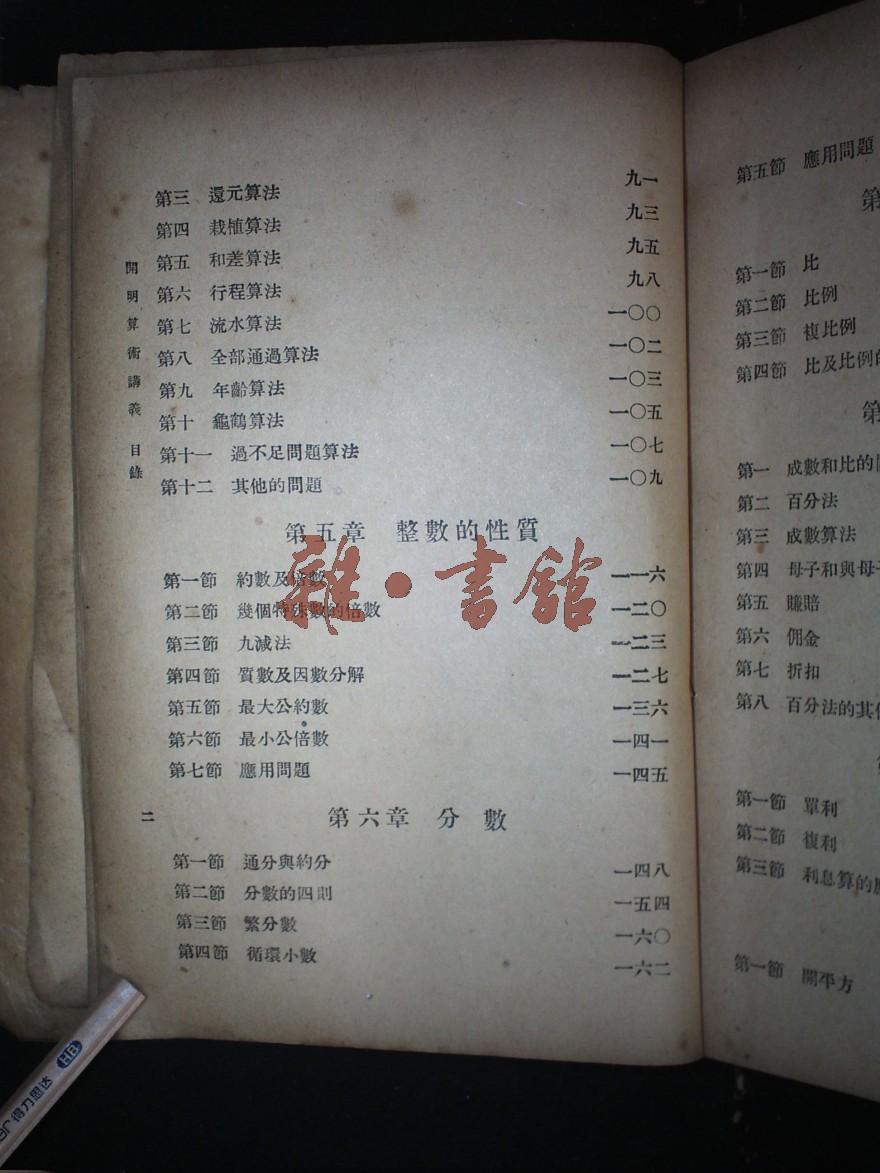 開明算術講義 目錄
第三 還元算法 九一
第四 栽植算法 九三
第五 和差算法 九五
第六 行程算法 九八
第七 流水算法 一〇〇
第八 全部通過算法 一〇二
第九 年齡算法 一〇三
第十 龜鶴算法 一〇五
第十一 過不足問題算法 一〇七
第十二 其他的問題 一〇九
第五章 整數的性質
第一節 約數及倍數 一一六
第二節 幾個特殊數的倍數 一二〇
第三節 九減法 一二三
第四節 質數及因數分解 一二七
第五節 最大公約數 一三六
第六節 最小公倍數 一四一
第七節 應用問題 一四五
二
第六章 分數
第一節 通分與約分 一四八
第二節 分數的四則 一五四
第三節 繁分數 一六〇
第四節 循環小數 一六二
雜·書館
第五節 應用問題
第
第一節 比
第二節 比例
第三節 複比例
第四節 比及比例的
第
第一 成數和比的
第二 百分法
第三 成數算法
第四 母子和與母子
第五 賺賠
第六 佣金
第七 折扣
第八 百分法的其
第一節 單利
第二節 複利
第三節 利息算的
第一節 開平方
得力思达 HB